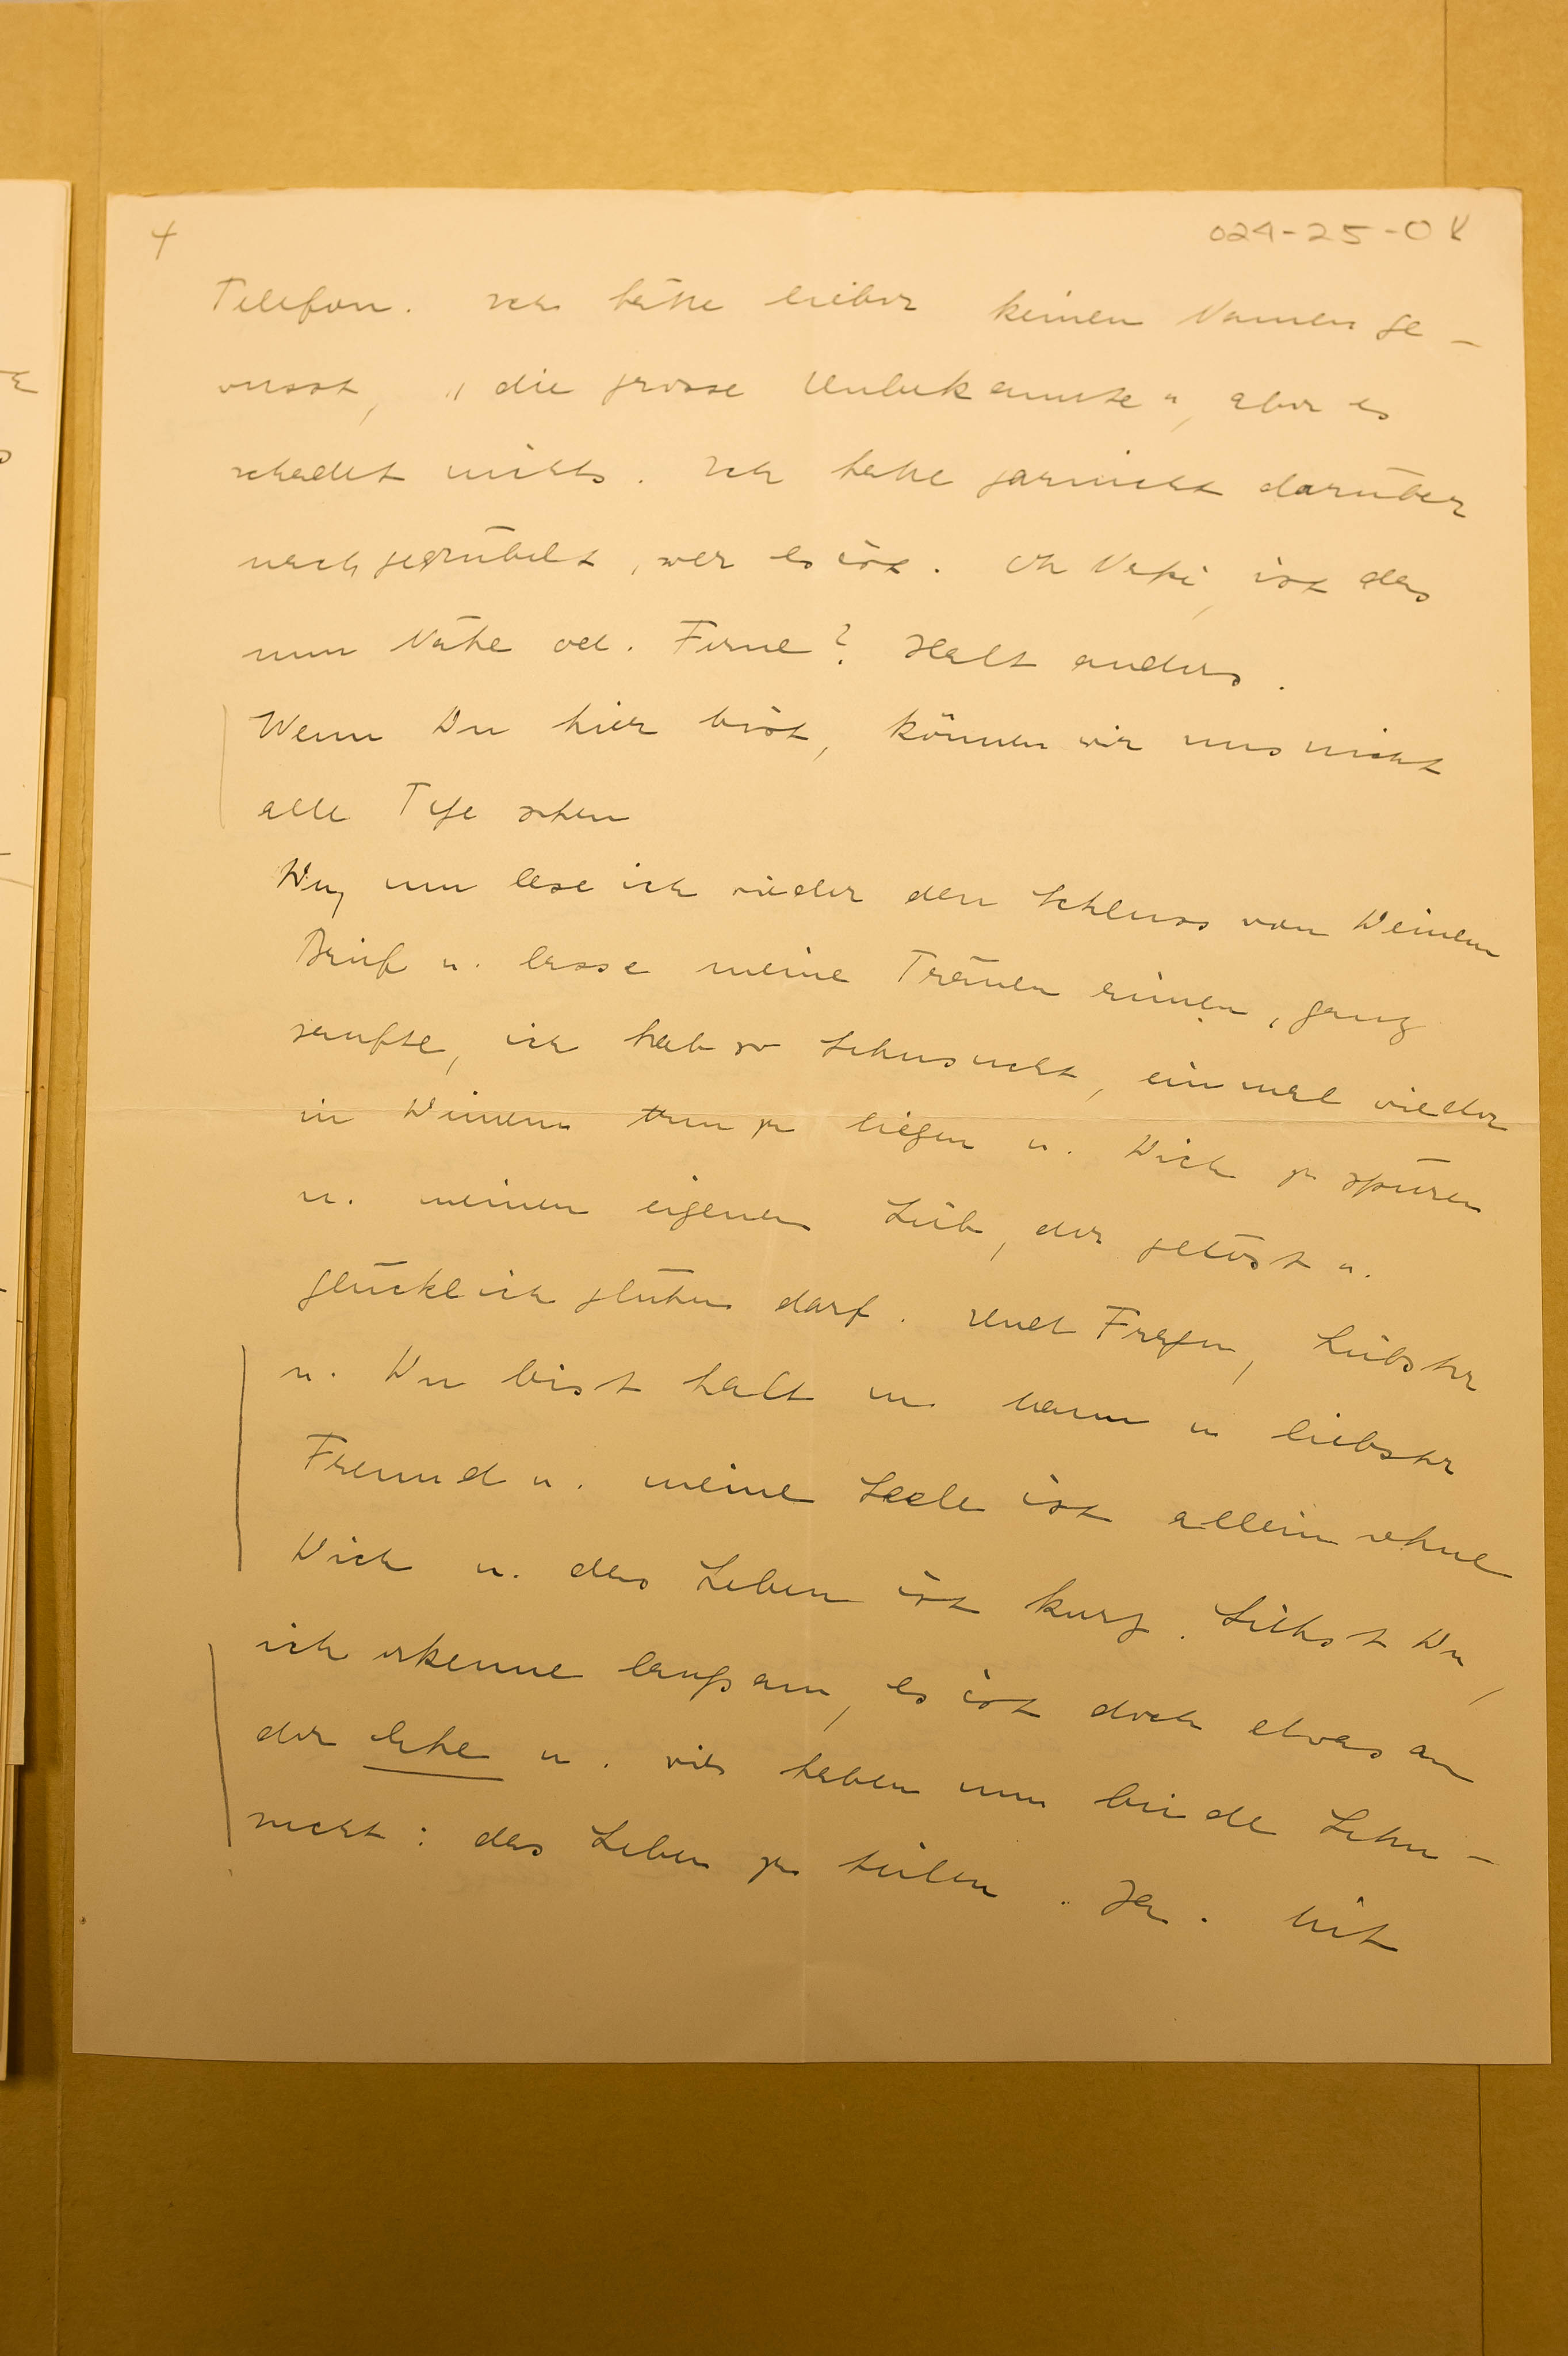 4
024-25-08
Telefon. Ich hätte lieber keinen Namen ge-
wusst, „die grosse Unbekannte", aber es
schadet nichts. Ich hatte garnicht darüber
nachgegrübelt, wer es ist. Oh ist das
nun Nähe od. Ferne? Halt anders.
Wenn Du hier bist, können wir uns nicht
alle Tage sehen
Du, nun lese ich wieder den Schluss von Deinem
Brief u. lasse meine Tränen rinnen, ganz
sanfte, ich hab so Sehnsucht, einmal wieder
in Deinem Arm zu liegen u. Dich zu spüren
u. meinen eigenen Leib, der gelöst u.
glücklich glühen darf. Und Fragen, Liebster
u. Du bist halt m. Mann u liebster
Freund u. meine Seele ist allein ohne
Dich u. das Leben ist kurz. Siehst Du,
ich erkenne langsam, es ist doch etwas an
der Ehe u. wir haben nun beide Sehn-
sucht: das Leben zu teilen. Ja. Mit